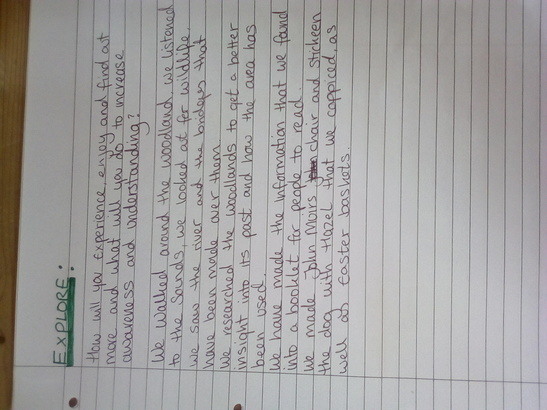 EXPLORE:
How will you experience, enjoy and find out
more and what will you do to increase
awareness and understanding?
We walked around the woodland, we listened
to the sounds, we looked out for wildlife.
we saw the river and the bridges that
have been made over them.
We researched the woodlands to get a better
insight into its past and how the area has
been used.
We have made the information that we found
into a booklet for people to read.
We made John Moirs chair and stickeen
the dog with Hazel that we coppiced, as
well as Easter baskets.